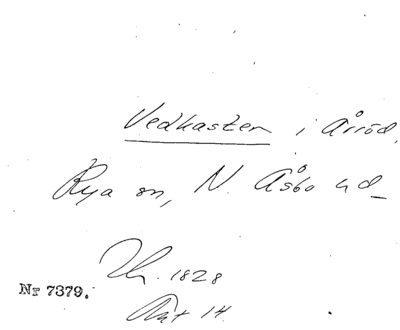 Vedkasten i Årröd,
Rya sn, N. Åsbo hd
Th. 1828
Nr 7379.
14